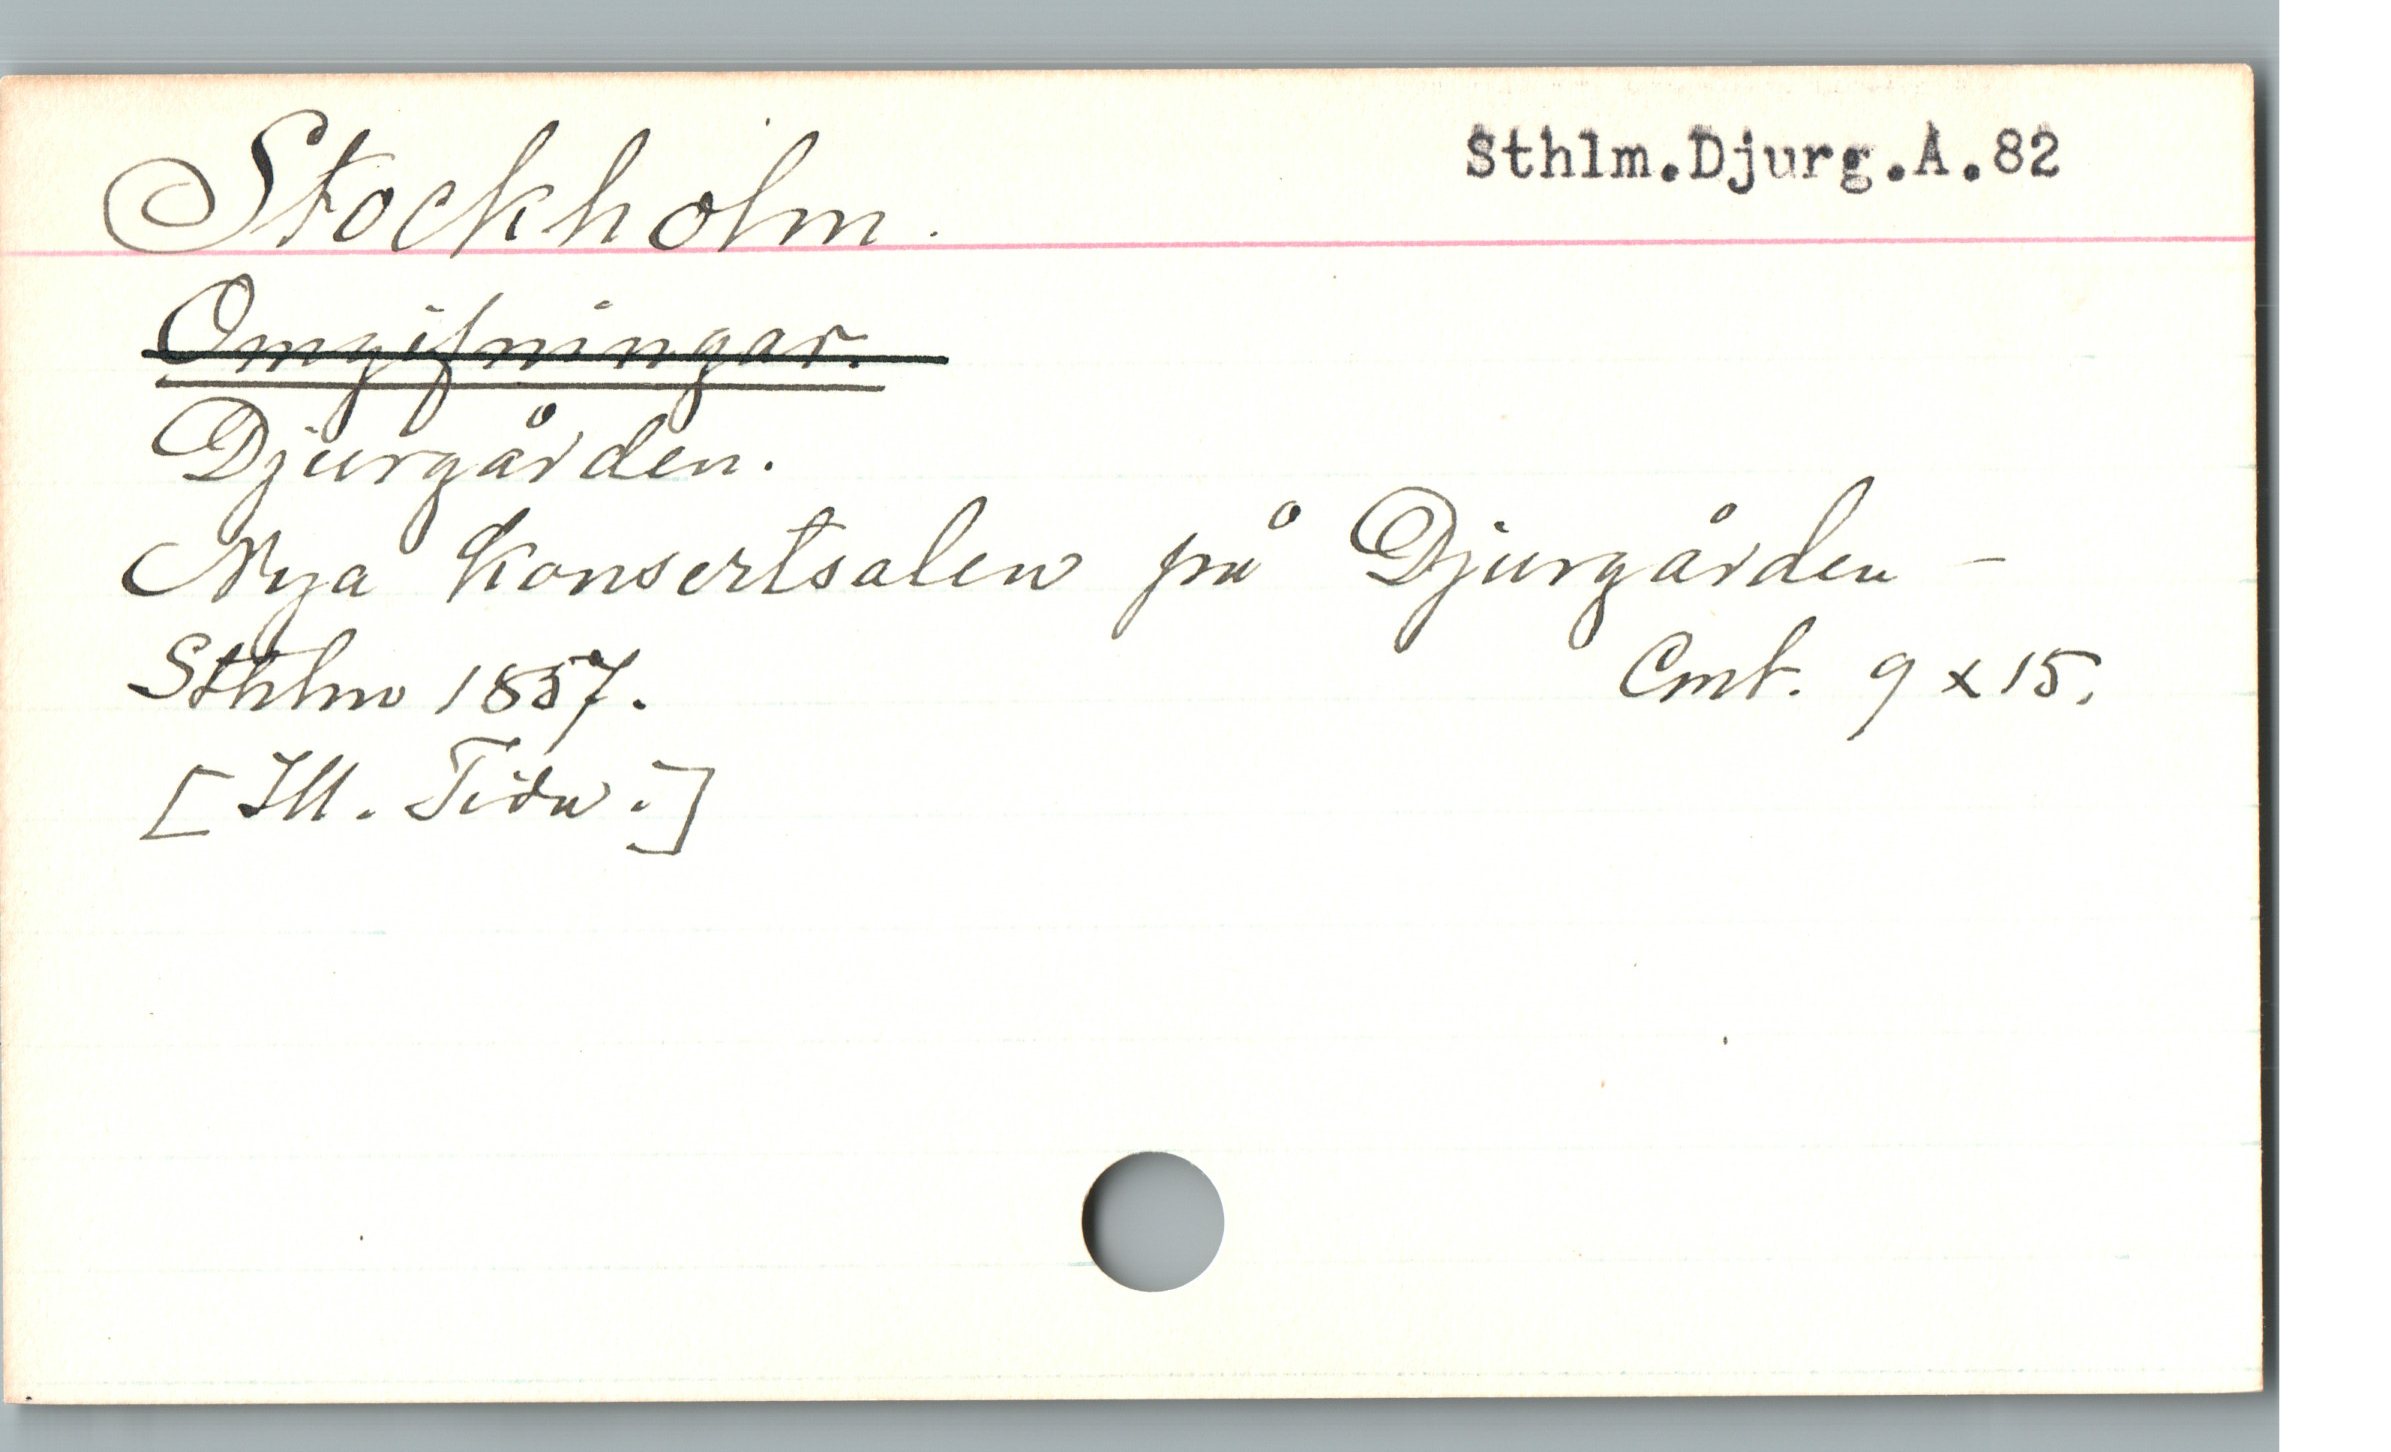 Stockholm.
Sthlm.Djurg.A.82
Omgifningar.
Djurgården.
Nya Konsertsalen på Djurgården –
Sthlm 1857.
Cmt. 9 x 15.
[Ill. Tidn.]